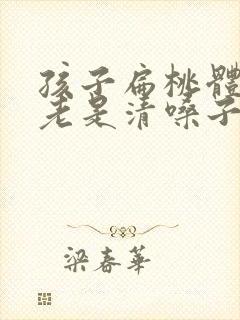 孩子扁桃體
老是清嗓子
梁春華